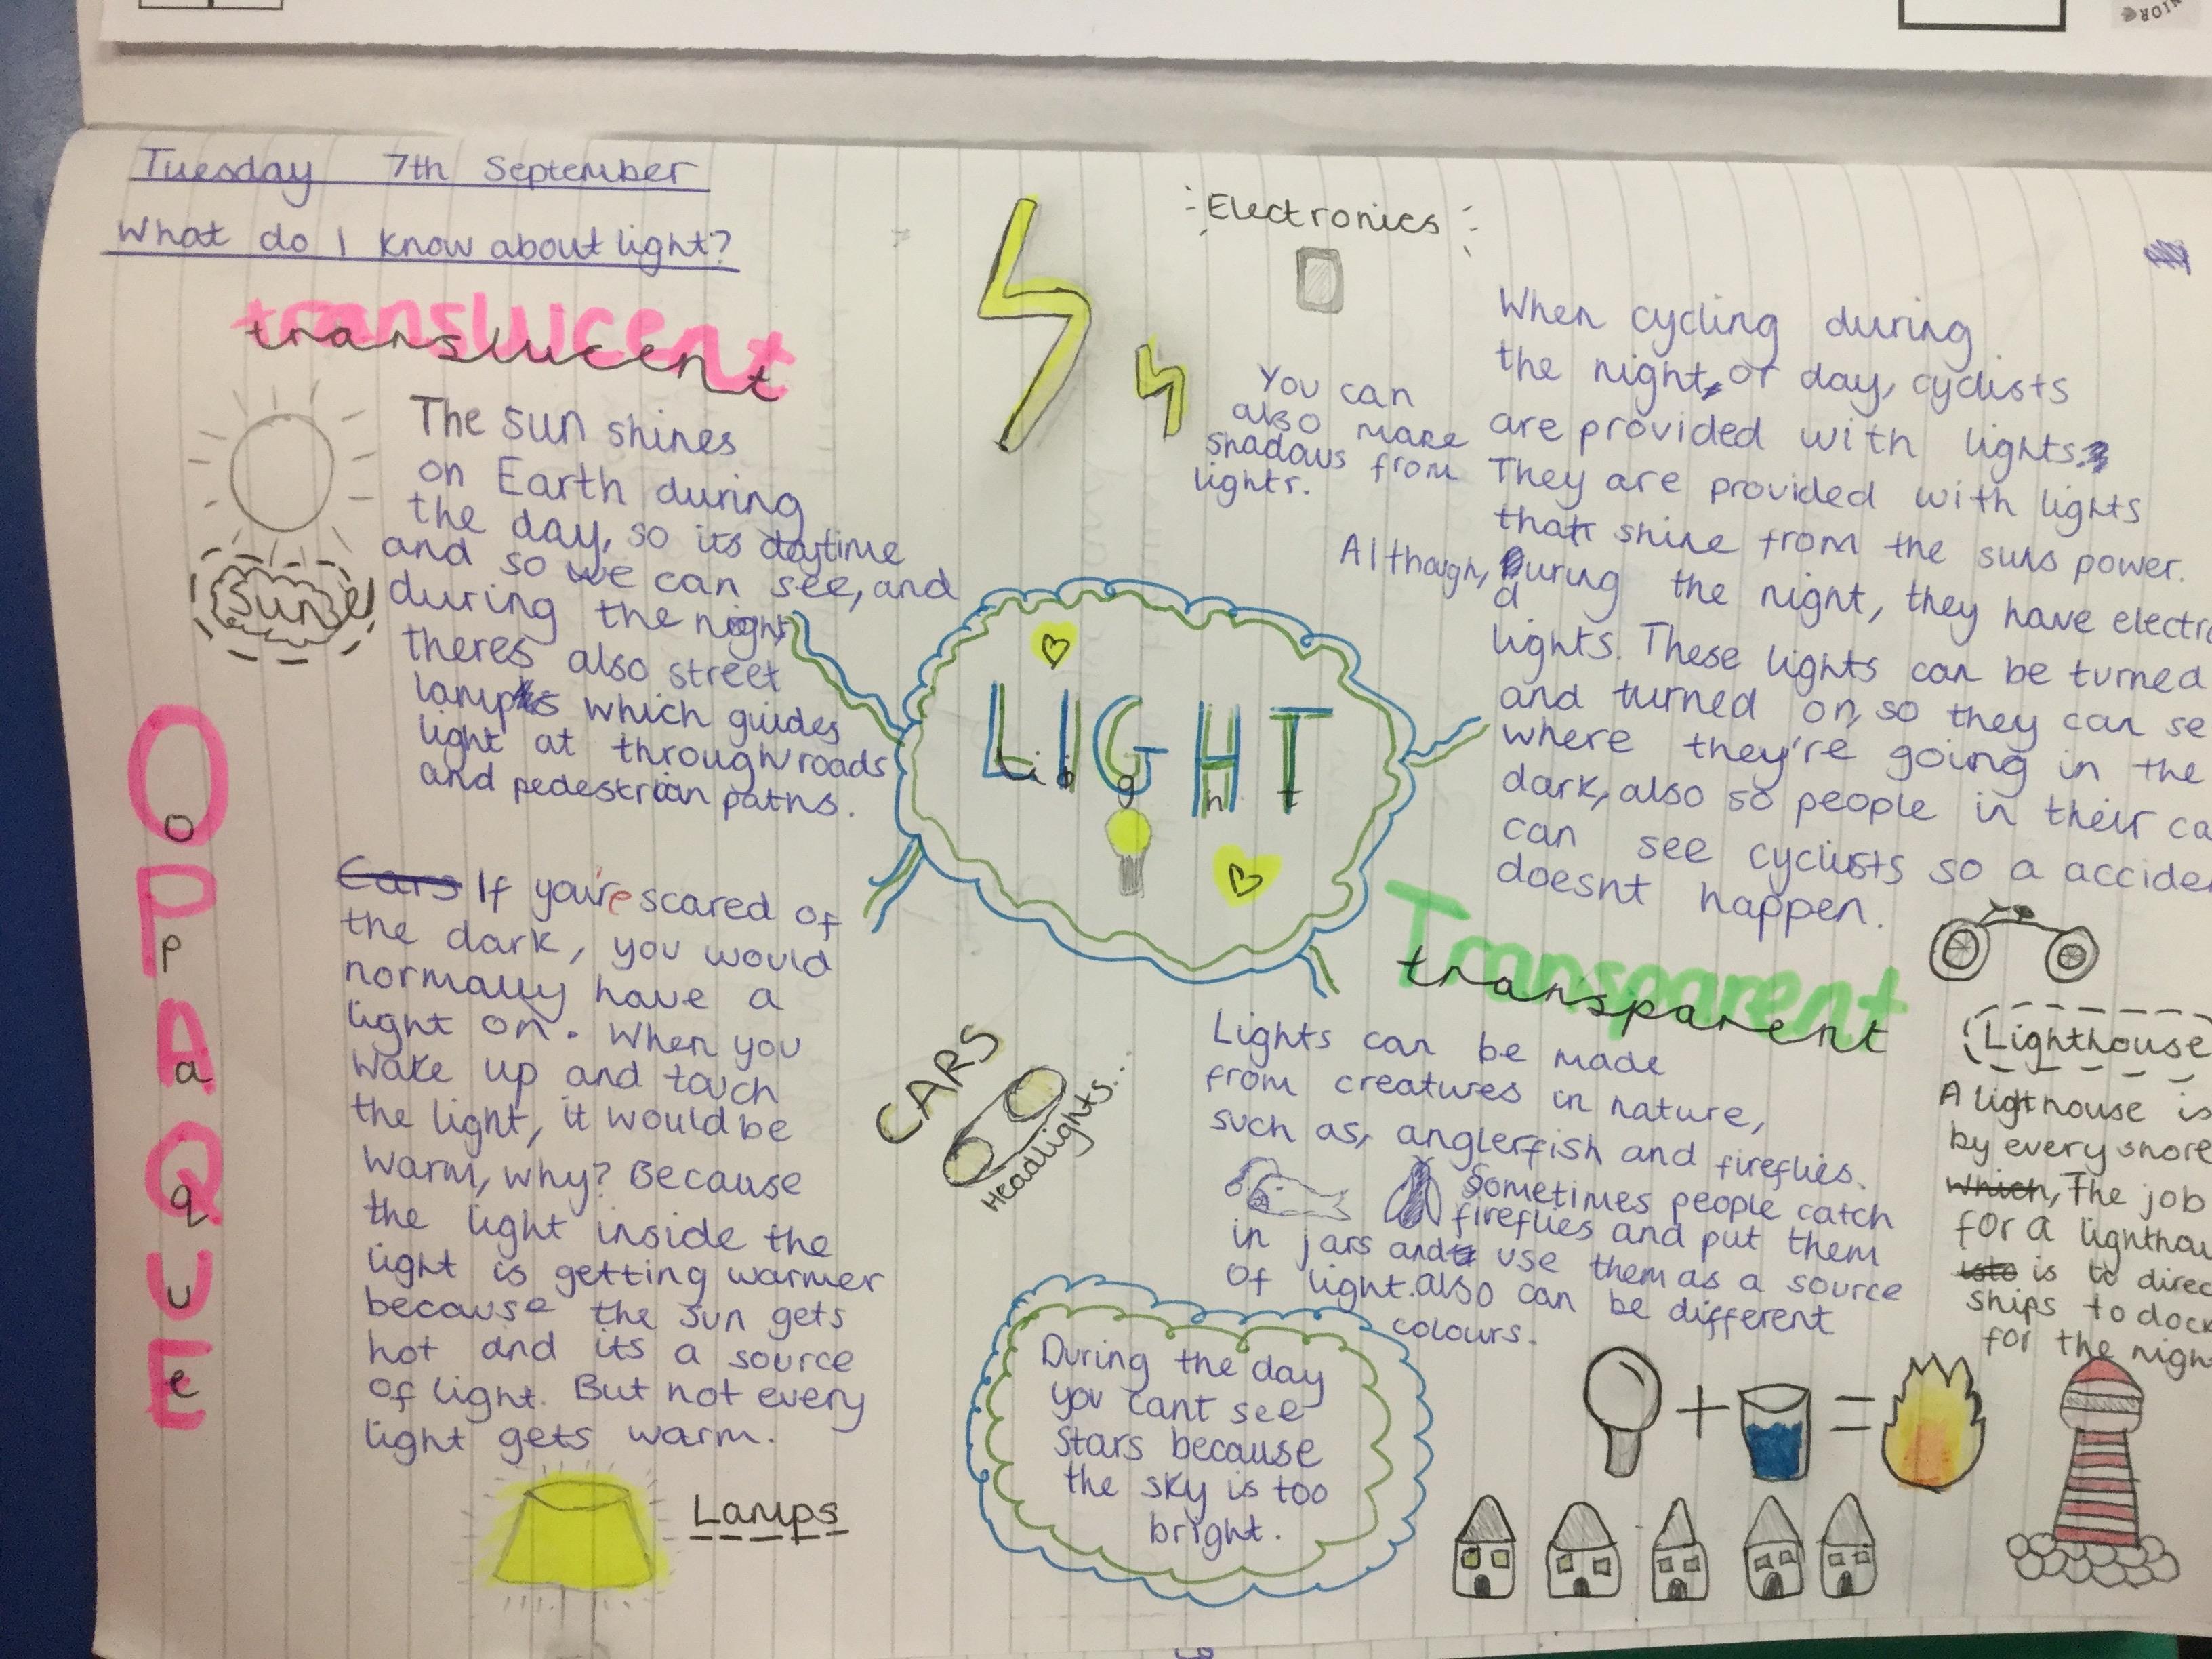 Tuesday 7th September
What do I know about light?
translucent
translucent
The sun shines
on Earth during
the day, so its daytime
and so we can see, and
during the night
theres also street
lamps which guides
light at through roads
and pedestrian paths.
Sun
OPAQUE
opaque
Cars If you're scared of
the dark, you would
normally have a
light on. When you
wake up and touch
the light, it would be
warm, why? Because
the light inside the
light is getting warmer
because the sun gets
hot and its a source
of light. But not every
light gets warm.
Lamps
Electronics
You can
also make
shadows from
lights.
LIGHT
light
CARS
Headlights...
During the day
you cant see
stars because
the sky is too
bright.
When cycling during
the night, or day, cyclists
are provided with lights.
They are provided with lights
that shine from the suns power.
Although, during the night, they have
lights. These lights can be turned
and turned on, so they can
where they're going in the
dark, also so people in their
can see cyclists so a
doesnt happen.
Transparent
transparent
Lights can be made
from creatures in nature,
such as, anglerfish and fireflies.
Sometimes people catch
fireflies and put them
in jars and use them as a source
of light. also can be different
colours.
Lighthouse
A lighthouse is
by every shore
which, The job
for a
is to
ships to dock
for the
JUNIOR